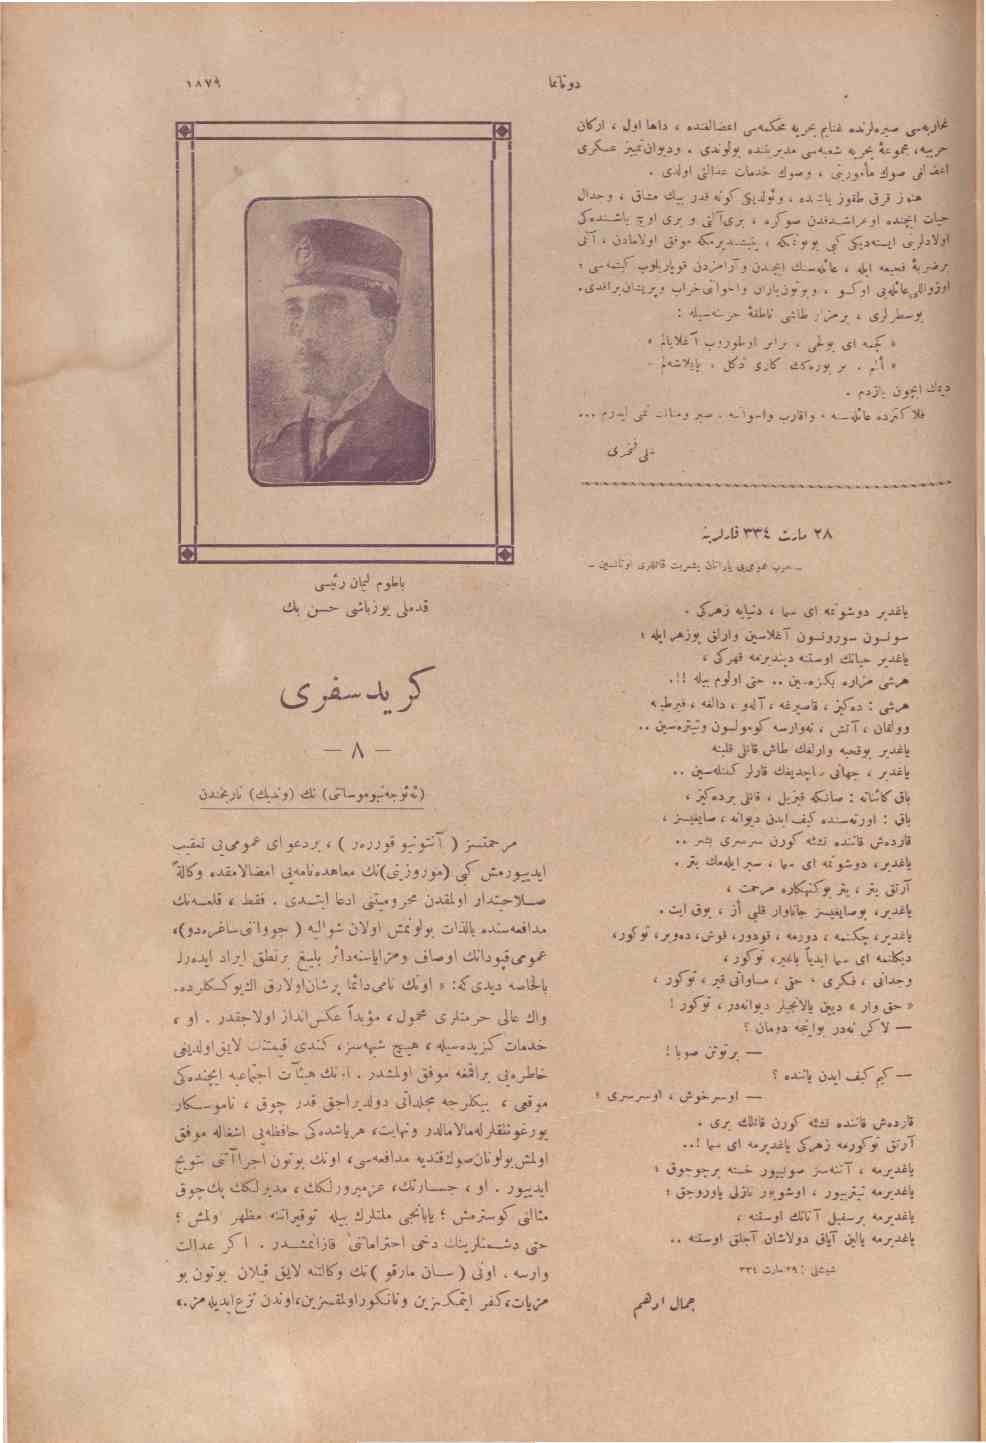 دوناتما
١٨٧٩
محاربه‌سی صیره‌لرنده غنایم بحریه محکمه‌سی اعضالغنده ، داها اول ، ارکان
حربیه، مجموعهٔ بحریه شعبه‌سی مدیریتنده بولوندی . ودیوان تمییز عسکری
اعضالغی صوك مأموریتی ، وصوك خدمات عدالتی اولدی .
هنوز قرق طقوز یاشنده ، وئولدیکی کونه قدر بیك مشاق ، وجدال
حیات ایچنده اوغراشدقدن صوکره ، بری آلتی و بری اوچ یاشنده‌کی
اولادلرینی ایسته‌دیکی کبی بویوتمکه ، یتیشدیرمکه موفق اولامادن ، آنی
برضربهٔ فجیعه ایله ، عائله‌سنك ایچندن وآرامزدن قوپاریلوب کیتمه‌سی ؛
عائله‌یی اوکسوز ، وبوتون یاران واخوانی خراب وپریشان براقدی.
بوسطرلری ، برمزار طاشی ناطقهٔ حزینه‌سیله :
« کچمه ای یولجی ، برابر اوطوروب آغلایالم »
دیمك ایچون یازدم .
فلاکتزده عائله‌سنه ، واقارب واخوانه ، صبر ومتانت تمنی ایدرم ...
علی فخری
٢٨ مارت ٣٣٤ قارلرینه
ـ حرب عمومی‌یی یاراتان بشریت قاتللری اوتانسین ـ
یاغدیر دوشونمه ای سما ، دنیایه زهرکی .
سونسون سورونسون آغلاسین وارلق بوزهر ایله ؛
یاغدیر حیاتك اوستنه دیندیرمه قهرکی ،
هرشی مزاره بکزه‌سین .. حتی اولوم بیله !!.
هرشی : ده‌کیز ، قاصیرغه ، آله‌و ، دالغه ، فیرطینه
وولقان ، آتش ، نه‌وارسه کومولسون وتیتره‌سین ..
یاغدیر بوقحبه وارلغك طاش قاتلی قلبنه
یاغدیر ، جهانی قارلر کفنله‌سین ..
باق کائناته : صانکه قیزیل ، قانلی برده‌کیز ،
باق : اورته‌سنده کیف ایدن دیوانه ، صایغیسز ،
قارده‌ش قاننده نشئه کورن سرسری بشر ..
یاغدیر، دوشونمه ای سما ، سیر ایله‌مك یتر .
آرتق یتر ، یتر بوکنهکاره مرحمت ،
یاغدیر، بوصایغیسز جاناوار قلبی أز ، یوق ایت .
یاغدیر، چکنمه ، دورمه ، قودور، قوش، ده‌ویر، توکور،
دیکلنمه ای سما ابدیاً یاغیر، توکور ،
وجدانی ، فکری ، حقی ، مساواتی قیر ، توکور ،
« حق وار » دیین یالانجیلر دیوانه‌در ، توکور !
— لاکن نه‌در بوایجه دومان ؟
— برتوتن صوبا !
— کیم کیف ایدن یاننده ؟
— اوسرخوش ، اوسرسری ؛
قارده‌ش قاننده نشئه کورن قاتلك بری .
آرتق توکورمه زهرکی یاغدیرمه ای سما !..
یاغدیرمه ، آننه‌سز صولییور خسته برچوجوق ؛
یاغدیرمه تیتریيور ، اوشویور نازلی یاوروجق ؛
یاغدیرمه برسفیل آنانك اوستنه ،
یاغدیرمه یالین آیاق دولاشان آجلق اوستنه ..
شیشلی : ٢٩ مارت ٣٣٤
جمال ادهم
باطوم لیمان رئیسی
قدملی یوزباشی حسن بك
کرید سفری
— ٨ —
(ئه‌ئوجه‌نیوموساتتی) نك (وندیك) تاریخندن
مرحمتسز ( آنتونیو قوررەر ) ، بردعوای عمومی‌یی تعقیب
ایدییورمش کبی (موروزینی)نك معاهده‌نامه‌یی امضالامقده وکالةً
صلاحیتدار اولمقدن محرومیتنی ادعا ایتدی . فقط ، قلعه‌نك
مدافعه‌سنده بالذات بولونمش اولان شوالیه ( جووانی ساغره‌دو)،
عمومی قپودانك اوصاف ومزایاسنه‌دائر بلیغ برنطق ایراد ایده‌رك
بالخاصه دیدی‌که: « اونك نامی دائما پرشان اولارق اك یوکسکلرده.
واك عالی حرمتلری محمول ، مؤبداً عکس انداز اولاجقدر . او ،
خدمات گزیده‌سیله ، هیچ شبهه‌سز، کندی قیمتنه لایق اولدیغی
خاطره‌یی براقمغه موفق اولمشدر . اونك هیئآت اجتماعیه ایچنده‌کی
موقعی ، بیکلرجه مجلداتی دولدیراجق قدر چوق ، ناموسکار
یورغونلقلرله مالامالدر ونهایت، هریاشده‌کی حافظه‌یی اشغاله موفق
اولمش بولونان صوك قندیه مدافعه‌سی، اونك بوتون اجراآتنی تتویج
ایدییور . او ، جسارتك، عزمپرورلکك ، مدبرلکك پك چوق
مثالنی کوسترمش ؛ یابانجی ملتلرك بیله توقیراتنه مظهر اولمش ؛
حتی دشمنلرینك دخی احتراماتنی قازانمشدر . اکر عدالت
وارسه . اونی ( سان مارقو )نك وکالتنه لایق قیلان بوتون بو
مزیات، کفر ایتمکسزین ونانکور اولمقسزین، اوندن نزع ایدیله‌مز.»